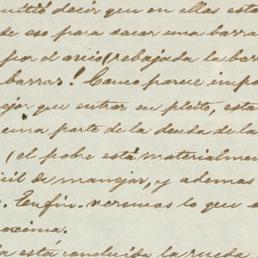 mitió decir que en ellas esta
de eso para sacar una barra
por d avio (rebajada la bar
barras! Como parece impo
ejor que entrar en pleito, esta
ema parte de la deuda de la
(el pobre está materialmen
cil de manejar, y ademas
. Enfin veremos lo que
oxima.
la está concluida la rueda